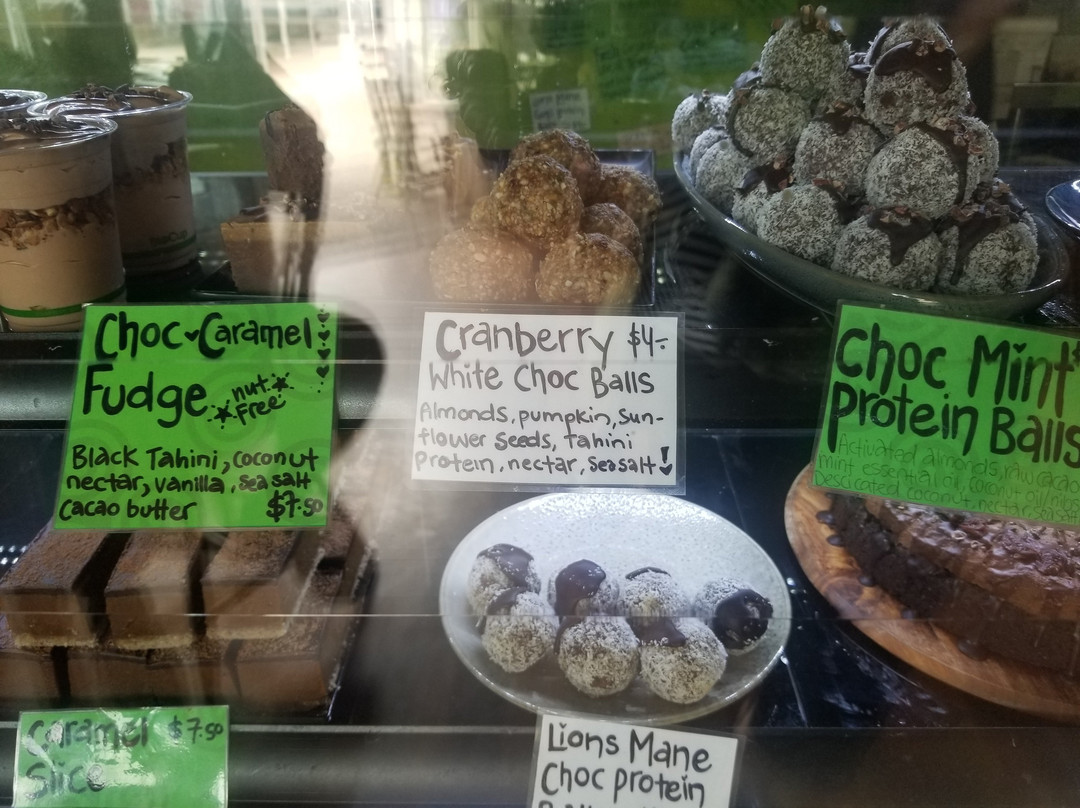 Choc Caramel!
Fudge nut
free
Black Tahini, coconut
nectar, vanilla, sea salt
Cacao butter $7.50
Cranberry $4-
White Choc Balls
Almonds, pumpkin, Sun-
flower Seeds, Tahini
Protein, nectar, Seasalt!
Choc Mint
Protein Balls
Activated almonds, raw cacao
mint essential oil, coconut
Desicated coconut, nectar, seasalt
caramel $7.50
Slice
Lions Mane
Choc protein